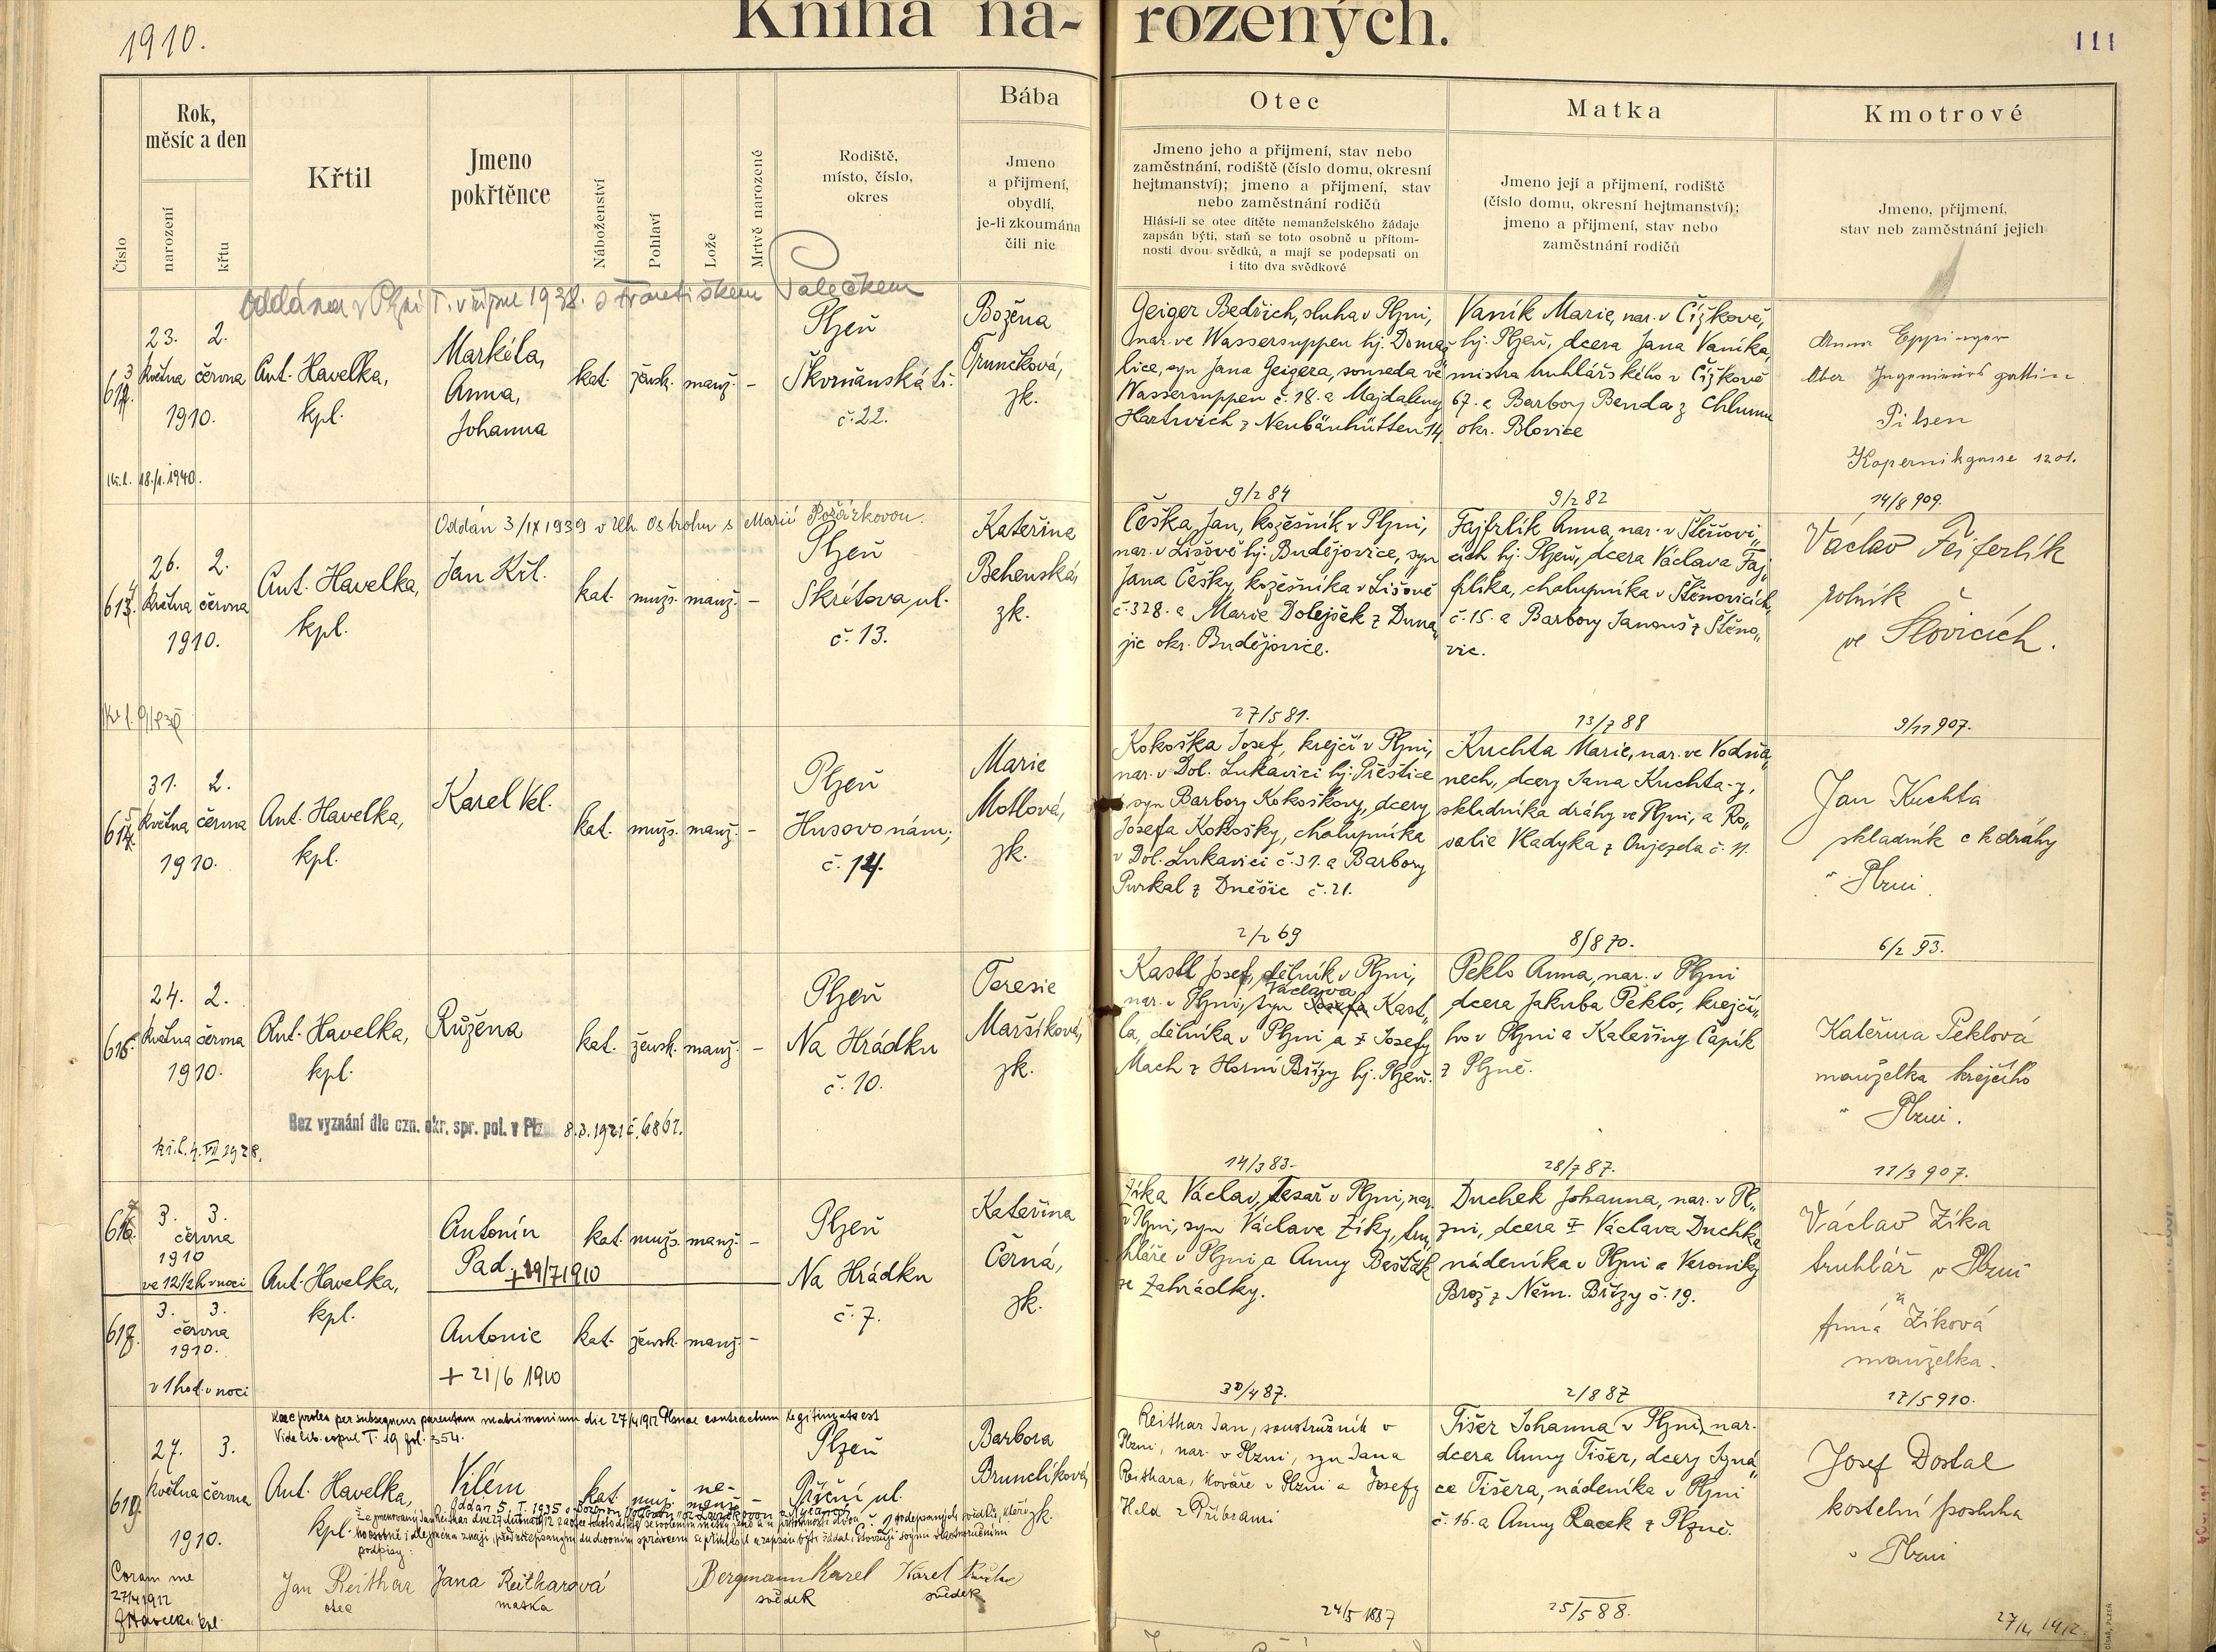 1910.
Kniha na-
rozených.
111
Číslo
Rok,
měsíc a den
narození
křtu
Křtil
Jmeno
pokřtěnce
Náboženství
Pohlaví
Lože
Mrtvě narozené
Rodiště,
místo, číslo,
okres
Bába
Jmeno
a přijmení,
obydlí,
je-li zkoumána
čili nic
Otec
Jmeno jeho a přijmení, stav nebo
zaměstnání, rodiště (číslo domu, okresní
hejtmanství); jmeno a přijmení, stav
nebo zaměstnání rodičů
Hlásí-li se otec dítěte nemanželského žádaje
zapsán býti, staň se toto osobně u přítom-
nosti dvou svědků, a mají se podepsati on
i tito dva svědkové
Matka
Jmeno její a přijmení, rodiště
(číslo domu, okresní hejtmanství);
jmeno a přijmení, stav nebo
zaměstnání rodičů
Kmotrové
Jmeno, přijmení,
stav neb zaměstnání jejich
Oddána v Plzni I. v říjnu 1938. s Františkem Palečkem
613.
23. 2.
května června
1910.
18./1.1940.
Ant. Havelka,
kpl.
Markéta,
Anna,
Johanna
kat. žensk. manž. –
Plzeň
Škvrňanská tř.
č. 22.
Božena
Trunečková,
zk.
Geiger Bedřich, sluha v Plzni,
nar. ve Wassersuppen hj. Domaž
lice, syn Jana Geigera, souseda ve
Wassersuppen č. 18. a Majdaleny
Hartwich z Neubäuhütten 14.
9/2 84
Vaník Marie, nar. v Čížkově,
hj. Plzeň, dcera Jana Vaníka,
mistra truhlářského v Čížkově
67. a Barbory Benda z Chlumu
okr. Blovice
9/2 82
Anna Eppinger
Ober Ingenieurs gattin
Pilsen
Kopernikgasse 1201.
14/8 909.
Oddán 3/IX 1939 v Uh. Ostrohu s Marií Požárkovou.
614.
26. 2.
května června
1910.
Ant. Havelka,
kpl.
Jan Kř.
kat. mužs. manž. –
Plzeň
Skrétova ul.
č. 13.
Kateřina
Behenská,
zk.
Češka Jan, kožešník v Plzni,
nar. v Lišově hj. Budějovice, syn
Jana Češky, kožešníka v Lišově
č. 328. a Marie Dolejšek z Duna„
jic okr. Budějovice.
27/5 81.
Fajfrlík Anna, nar. v Štěnovi„
cích hj. Plzeň, dcera Václava Faj„
frlíka, chalupníka v Štěnovicích,
č. 15. a Barbory Janouš z Štěno„
vic.
13/7 88
Václav Fejferlík
rolník
ve Šlovicích.
3/11 907.
615.
31. 2.
května června
1910.
Ant. Havelka,
kpl.
Karel Vel.
kat. mužs. manž. –
Plzeň
Husovo nám.
č. 14.
Marie
Motlová,
zk.
Kokoška Josef, krejčí v Plzni,
nar. v Dol. Lukavici hj. Přeštice
syn Barbory Kokoškovy, dcery
Josefa Kokošky, chalupníka
v Dol. Lukavici č. 31. a Barbory
Purkal z Dnešic č. 21.
2/2 69
Kuchta Marie, nar. ve Vodňa„
nech, dcery Jana Kuchta-y,
skladníka dráhy ve Plzni, a Ro„
salie Vladyka z Oujezda č. 11.
8/8 70.
Jan Kuchta
skladník c k dráhy
v Plzni.
6/2 93.
616.
24. 2.
května června
1910.
Ant. Havelka,
kpl.
Růžena
kat. žensk. manž. –
Plzeň
Na Hrádku
č. 10.
Teresie
Maršíková,
zk.
Bez vyznání dle ozn. okr. spr. pol. v Plzni 8.3.1921 č. 6867.
kř. l. 4. VII 1928.
Kastl Josef, dělník v Plzni,
Václava
nar. v Plzni, syn Josefa Kast„
la, dělníka v Plzni a ‡ Josefy
Mach z Horní Břízy hj. Plzeň.
14/3 83.
Peklo Anna, nar. v Plzni
dcera Jakuba Peklo, krejčí„
ho v Plzni a Kateřiny Čapík
z Plzně.
28/7 87.
Kateřina Peklová
manželka krejčího
v Plzni.
11/3 907.
617.
3. 3.
června
1910
ve 12½ h v noci
Antonín
Pad. +19/7 1910
kat. mužs. manž. –
618.
3. 3.
června
1910.
v 1 hod. v noci
Ant. Havelka,
kpl.
Antonie
+ 21/6 1910
kat. žensk. manž. –
Plzeň
Na Hrádku
č. 7.
Kateřina
Černá,
zk.
Zíka Václav, tesař v Plzni, nar.
v Plzni, syn Václava Zíky, tru„
hláře v Plzni a Anny Bešťák
ze Zahrádky.
30/4 87.
Duchek Johanna, nar. v Pl„
zni, dcera ‡ Václava Duchka
nádeníka v Plzni a Veroniky
Brož z Něm. Břízy č. 19.
2/8 87
Václav Zíka
truhlář v Plzni
Anna Zíková
manželka.
17/5 910.
Haec proles per subsequens parentum matrimonium die 27/4 1912 Plznae contractum legitimata est
Vide lib. copul T. 19 fol. 354.
619.
27. 3.
května června
1910.
Ant. Havelka,
kpl.
Vilém
kat. mužs. ne-
manž. –
Plzeň
Příční ul.
č. 1
Barbora
Brunclíková,
zk.
podpisy:
Coram me
27/4 1912
J. Havelka kpl.
Jan Reithar
otec
Jana Reitharová
matka
Bergmann Karel
svědek
Karel
svědek
Reithar Jan, soustružník v
Plzni, nar. v Plzni, syn Jana
Reithara, kováře v Plzni a Josefy
Held z Příbrami
24/5 1887
Tišer Johanna v Plzni, nar.
dcera Anny Tišer, dcery Igná„
ce Tišera, nádeníka v Plzni
č. 16. a Anny Racek z Plzně.
25/5 88.
Josef Dostal
kostelní posluha
v Plzni
27/4 1912